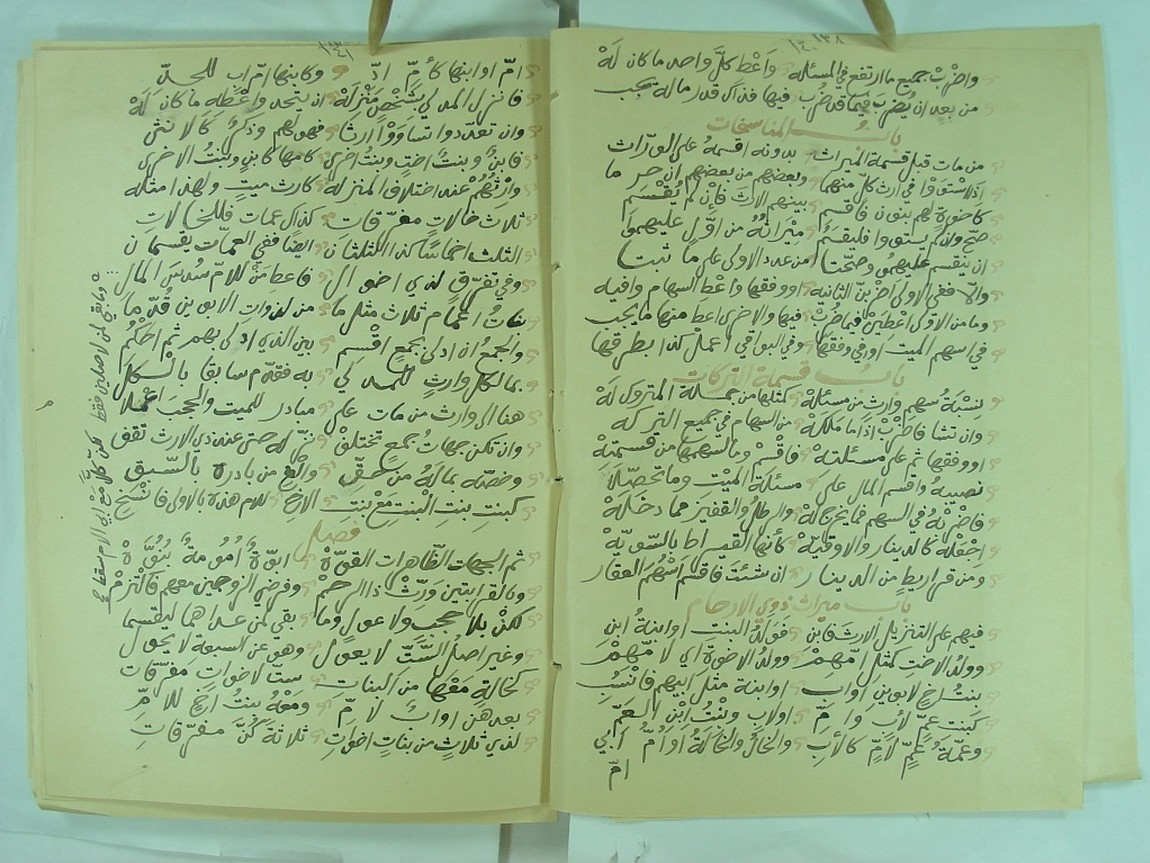 ١٤٠ ١٣٨
واضرِبْ جميع ما ارتفع في المسئله وَاعْطِ كلَّ واحد ما كان لَهْ
من بعد ان يُضرَبَ فيما قد ضُرِبْ فيها فذاك قدر ماله يجب
بابُ المناسخات
من مات قبل قسمة الميراث بدونه اقسمه على الورّاث
اِذا اسْتَوَوْا في ارث كلٍّ منهما وبعضهم من بعضهم ان حر ما
كاخوةٍ لهم بنون فاقسم بينهم الارثَ فإنْ لم يُقْسَم
صحّ وان لم يستووا فليقسَمُ مِيْرَاثُهُ من اوّلٍ عليهموُا
ان ينقسم عليهمُو وصحّتا من عدد الاولى على ما ثبتا
والّا ففي الاولى اضْرِبَنّ الثانيه اووفقها واعْطِ السهام وافيه
وما من الاولى اعْطيَنْ فيما ضُرِبْ فيها والاخرى اعط منها ما يجب
في اسهم الميت او في وفقها وفي البواقي اعملْ كذا بطرقها
بابُ قسمة التركات
لنسْبَةُ سهم وارثٍ من مسئلهْ كمثلها من جملة المتروك لَهْ
وان تشا فاضربْ اذا ما ملكهْ من السهام في جميع التركه
اووفقها ثم على مسئلتهْ فاقْسمْ وما لسهمها من قسمتهْ
نصيبهُ واقسم المال على مسئلة الميْت وما تحصّلَا
فاضْرِبْهُ في السهم فما يخرج لَهْ والرطلُ والقفيز مما دخَلَهْ
اجعَلْهُ كالدينار والاوقيّهْ كأنها القيراط بالسّويّهْ
ومن قراريطٍ من الدينار ان شئتَ فاقسم اَسْهُمَ العقار
باب ميراث ذوي الارحام
فيهم على التنزيل الارثَ فابنِ فوَلَدُ البنت اوابنة ابنِ
وولدُ الاخت كمثل امّهِمْ وولدُ الاخوة اي لامّهِمْ
بنتُ اخٍ لابوين اواب اوابنة مثل ابيهم فانْسُبِ
كبنت عمٍّ لأبٍ وامِّ اولاب وبنْتُ ابْن العمِّ
وعمّةُ عمٍّ لأمّ كالأبِ والخالُ والخالةُ اواُمُّ ابي
امّ
١٤١
امّ اوابنها كأمّ ادّ وكابنها امّ اب للجدّ
فانزل المدلي بشخصٍ منزلَهْ ان يتحد واعْطه ما كان لَهْ
وان تعدّدوا تساوَوْا ارثا فهولهم وذكرٌ كالانثى
فابنٌ وبنتُ اختٍ وبنتُ اخرى كامها كابنٍ وبنتُ الاخرى
وارثُهُمْ عند اختلاف المنزلة كارث ميتٍ ولهذا امثله
ثلاث خالات مفرّقات كذاك عمات فللخالات
الثلث اخماسًا كذا الثلثان ايضًا ففي العمّات يقسمان
وفي تفرّقٍ لذي اخوال فاعط مَنْ للامّ سُدسَ المال
بناتُ اعمام ثلاث مثل ما من لذوات الابوين قُدّما
والجمعُ ان ادلى بجمعٍ اقْسِم بين الذي ادلى بهم ثم احْكُمِ
بما لكل وارثٍ للمدلي به فقدّم سابقا بالْكلِّ
هنا الى وارث من مات على مبادر للميت والحجبَ اعْملا
وان تكن جهات جمعٍ تختلفْ نزّله حتى عند ذي الارث تقف
وخصّه بماله من حقِّ والْغِ من بادره بالسّبق
كبنتِ بنتِ البنتِ معْ بنتِ الاخ للام هذه بالاولى فانْسَخ
فصل
ثم الجهات الظّاهرات القوّهْ ابوّةٌ اُمُومةٌ بُنُوَّهْ
وبالقرابتين وَرِّثْ ذا الرحِمْ وفرضي الزوجين معهم فالتزمْ
لكنْ بلا حجبٍ ولا عولٍ وما بقي لمن عداهما ليقسما
وغير اصل السّتّ لا يعول وهو عن السبعة لا يحول
كخالةٍ مَعْها من البنات ست لاخواتٍ مفرّقات
بعدهن اوابٌ لامِّ ومَعْهُ بنتُ اخٍ للامِّ
لذي ثلاثٍ من بنات اخواتِ ثلاثة كنّ مفرّقاتِ
وما بقي لمن لاصلين فقط لكن كلٌّ مع ابي الام سقط